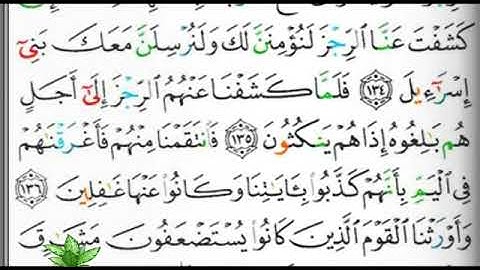 كَشَفْتَ عَنَّا ٱلرِّجْزَ لَنُؤْمِنَنَّ لَكَ وَلَنُرْسِلَنَّ مَعَكَ بَنِىٓ
إِسْرَٰٓءِيلَ ١٣٤ فَلَمَّا كَشَفْنَا عَنْهُمُ ٱلرِّجْزَ إِلَىٰٓ أَجَلٍ
هُم بَـٰلِغُوهُ إِذَا هُمْ يَنكُثُونَ ١٣٥ فَٱنتَقَمْنَا مِنْهُمْ فَأَغْرَقْنَـٰهُمْ
فِى ٱلْيَمِّ بِأَنَّهُمْ كَذَّبُوا۟ بِـَٔايَـٰتِنَا وَكَانُوا۟ عَنْهَا غَـٰفِلِينَ ١٣٦
وَأَوْرَثْنَا ٱلْقَوْمَ ٱلَّذِينَ كَانُوا۟ يُسْتَضْعَفُونَ مَشَـٰرِقَ